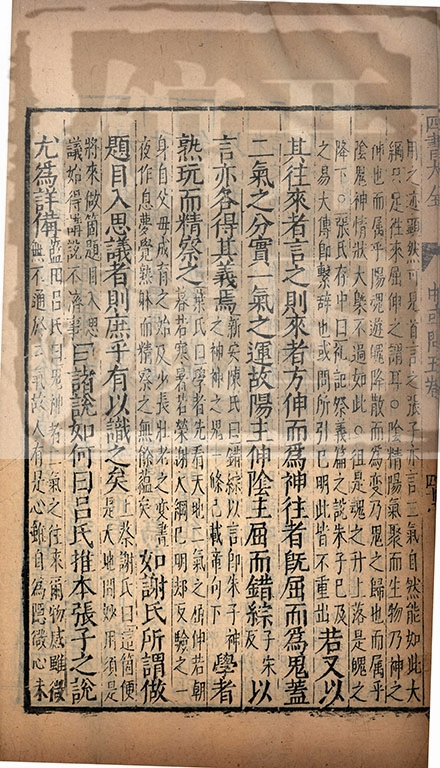 四書大全
中庸或問五卷
用之迹顯然可見首言之張子亦言二氣自然能如此大
綱只是往來屈伸之謂耳○陰精陽氣聚而生物乃神之
伸也而屬乎陽魂遊魄降散而為變乃鬼之歸也而屬乎
陰鬼神情狀大槩不過如此○徂是魂之升上落是魄之
降下○張氏存中曰礼記祭義篇之說朱子已及
之易大傳即繫辭也或問所引已明此皆不重出
若又以
其往來者言之則來者方伸而為神往者旣屈而為鬼蓋
二氣之分實一氣之運故陽主伸陰主屈而錯綜
朱子
以
言亦各得其義焉
新安陳氏曰錯綜以言即朱子神
之神神之鬼一條已載章句下
學者
熟玩而精察之
葉氏曰學者先看天地二氣之屈伸若朝
暮若寒暑若榮謝大綱已明却反驗之一
身自父母成育之始及少長壯老之變晝
夜作息夢覺熟味而精察之無餘蘊矣
如謝氏所謂做
題目入思議者則庶乎有以識之矣
上蔡謝氏曰這箇便
是天地間妙用須是
將來做箇題目入思
議始得講說不濟事
曰諸說如何曰呂氏推本張子之說
尤為詳備
藍田呂氏曰鬼神者二氣之往來爾物感雖微
無不通於二氣故人有是心雖自為隱微心未